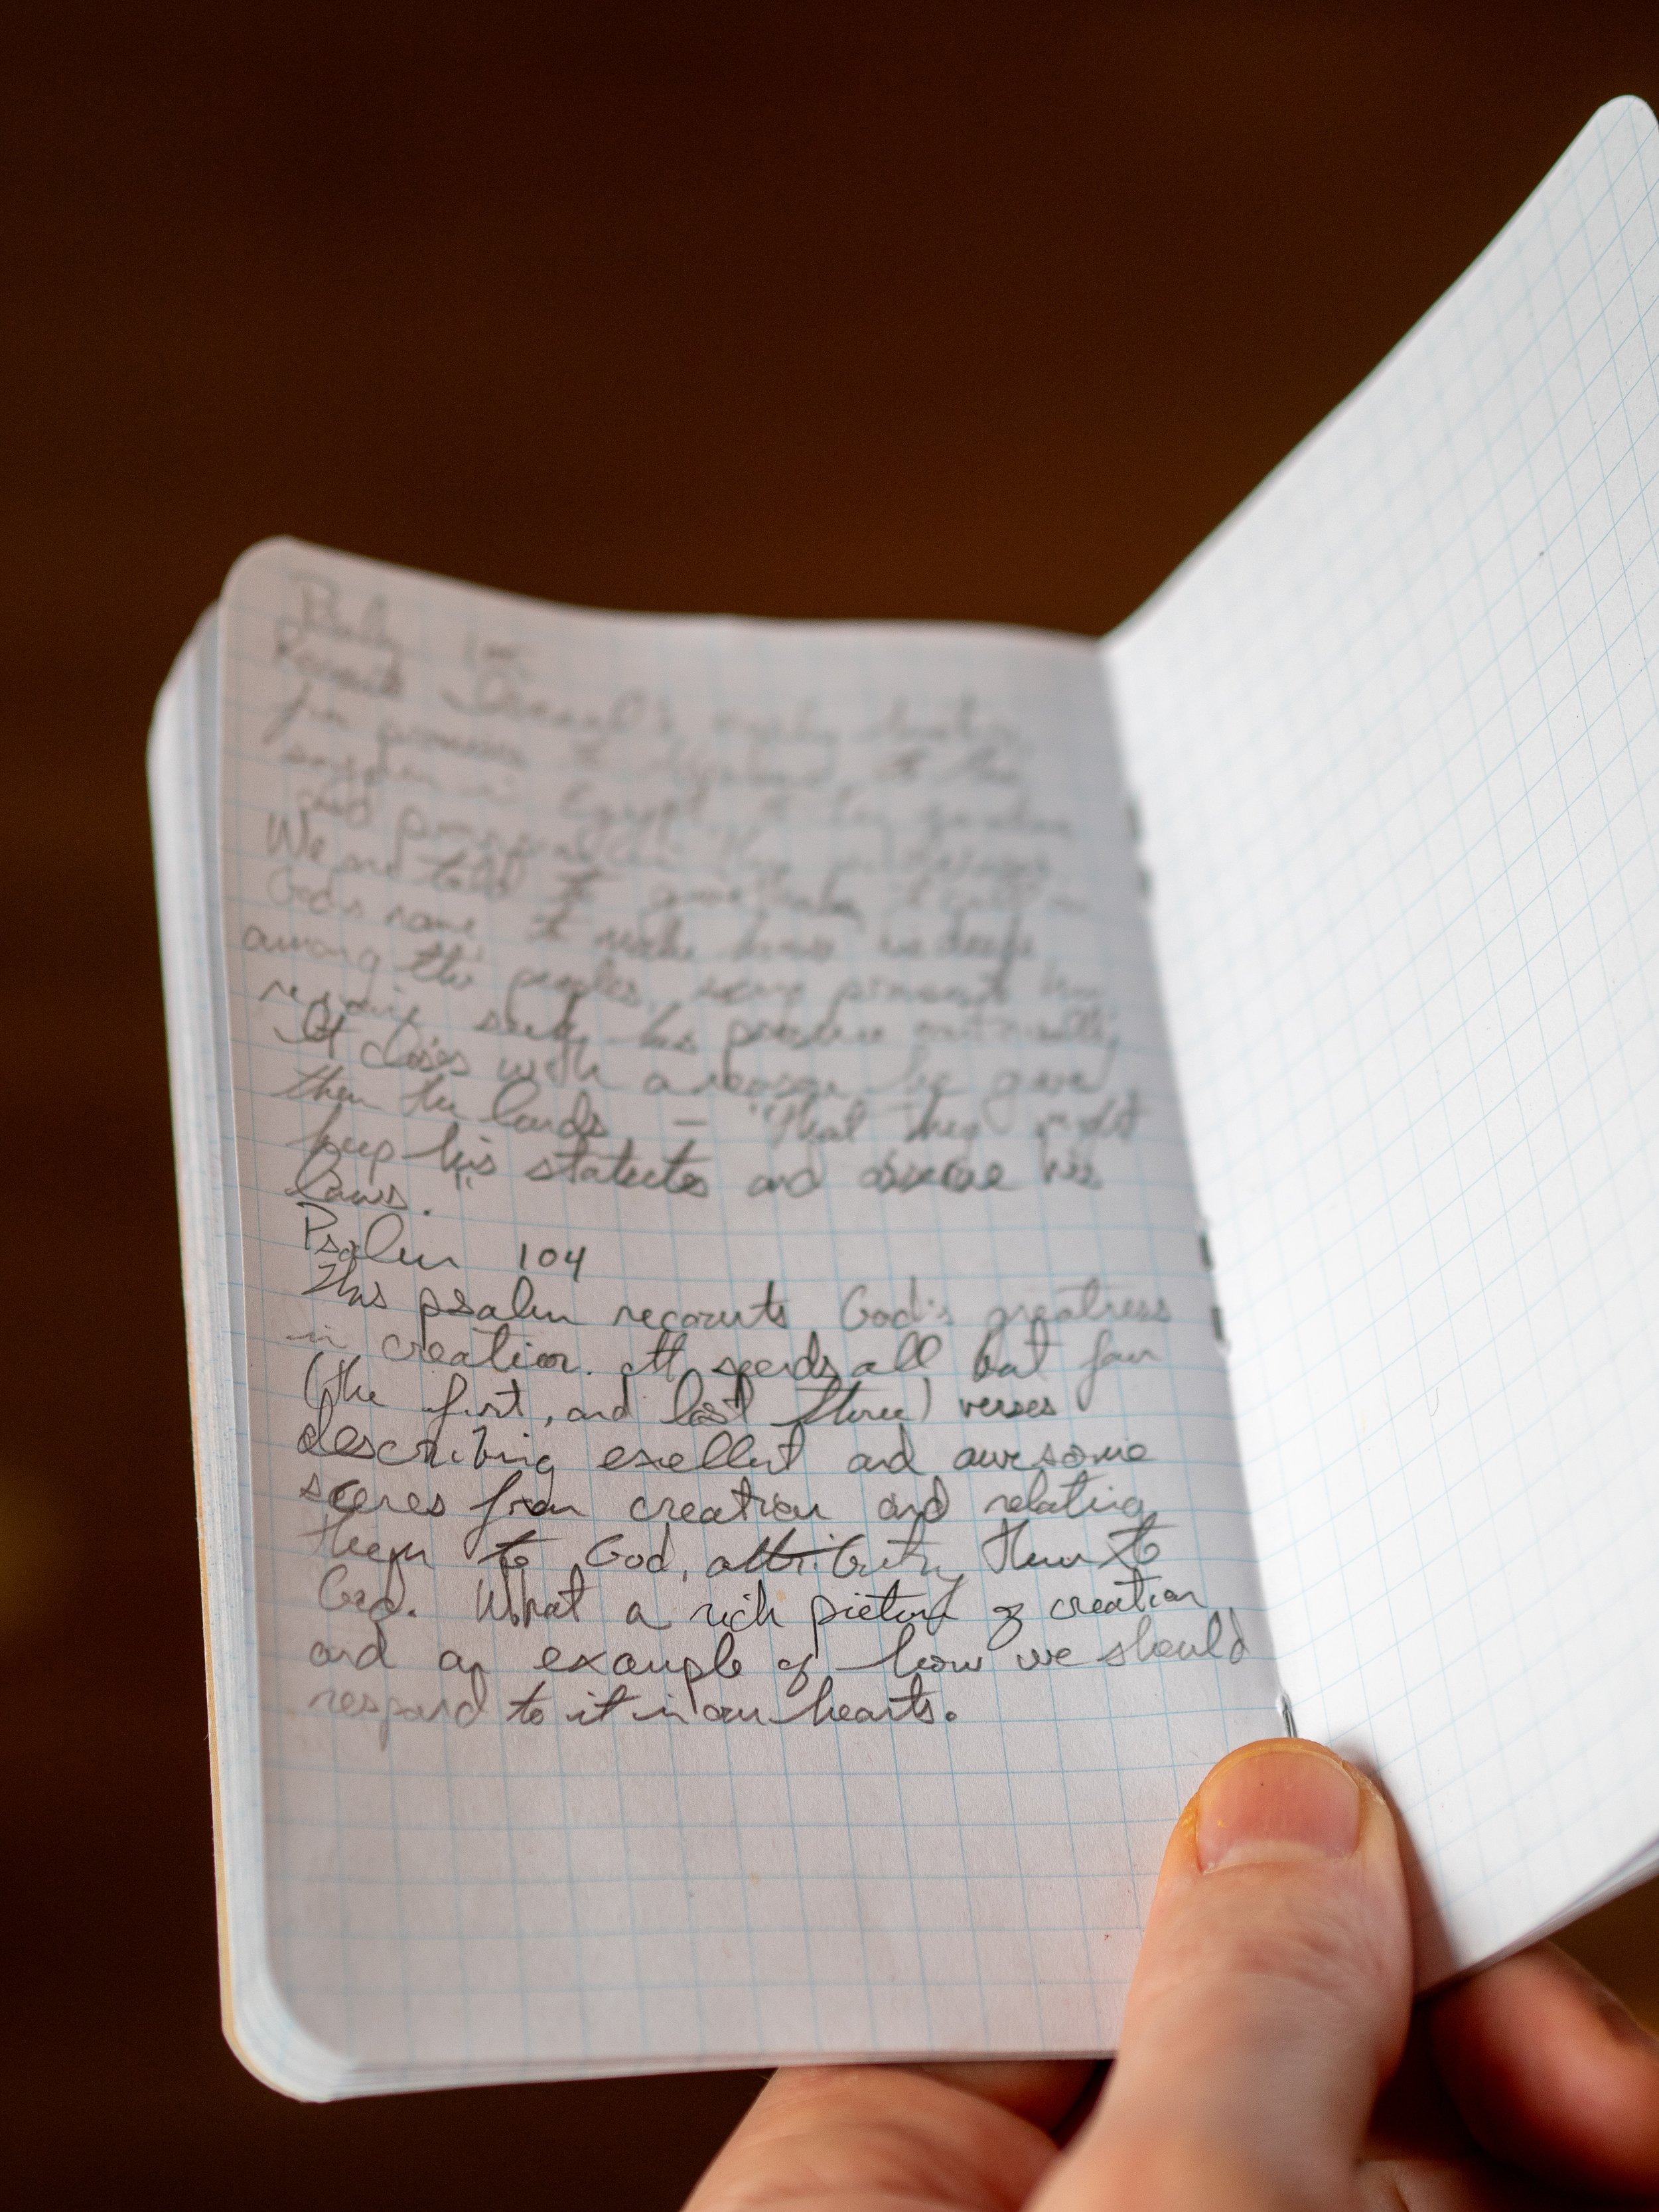 Psalm 105
Recounts Israel's early history,
from promises to Abraham to the
sojourn in Egypt, to
and
We are told to give thanks, call on
God's name, to make known his deeds
among the peoples, sing praises to him,
rejoice, seek his presence continually.
It closes with a reason he gave
them the lands – "that they might
keep his statutes and observe his
laws."
Psalm 104
This psalm recounts God's greatness
in creation. It spends all but four
(the first, and last three) verses
describing exellent and awesome
scenes from creation and relating
them to God, attributing them to
God. What a rich picture of creation
and an example of how we should
respond to it in our hearts.